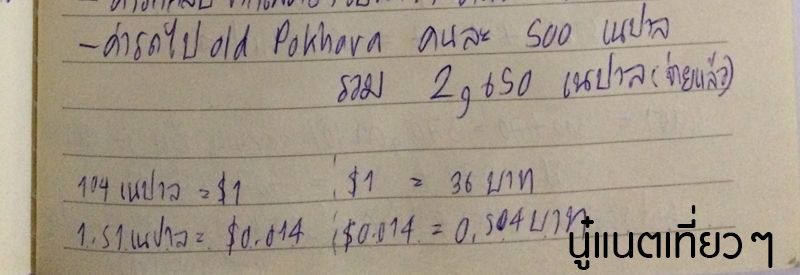 -ค่ารถไป old Pokhara คนละ 500 เนปาล
รวม 2,650 เนปาล (จ่ายแล้ว)
104 เนปาล = $1 ; $1 = 36 บาท
1.51 เนปาล = $0.014 ; $0.014 = 0.504 บาท
นู๋แนตเที่ยว ๆ